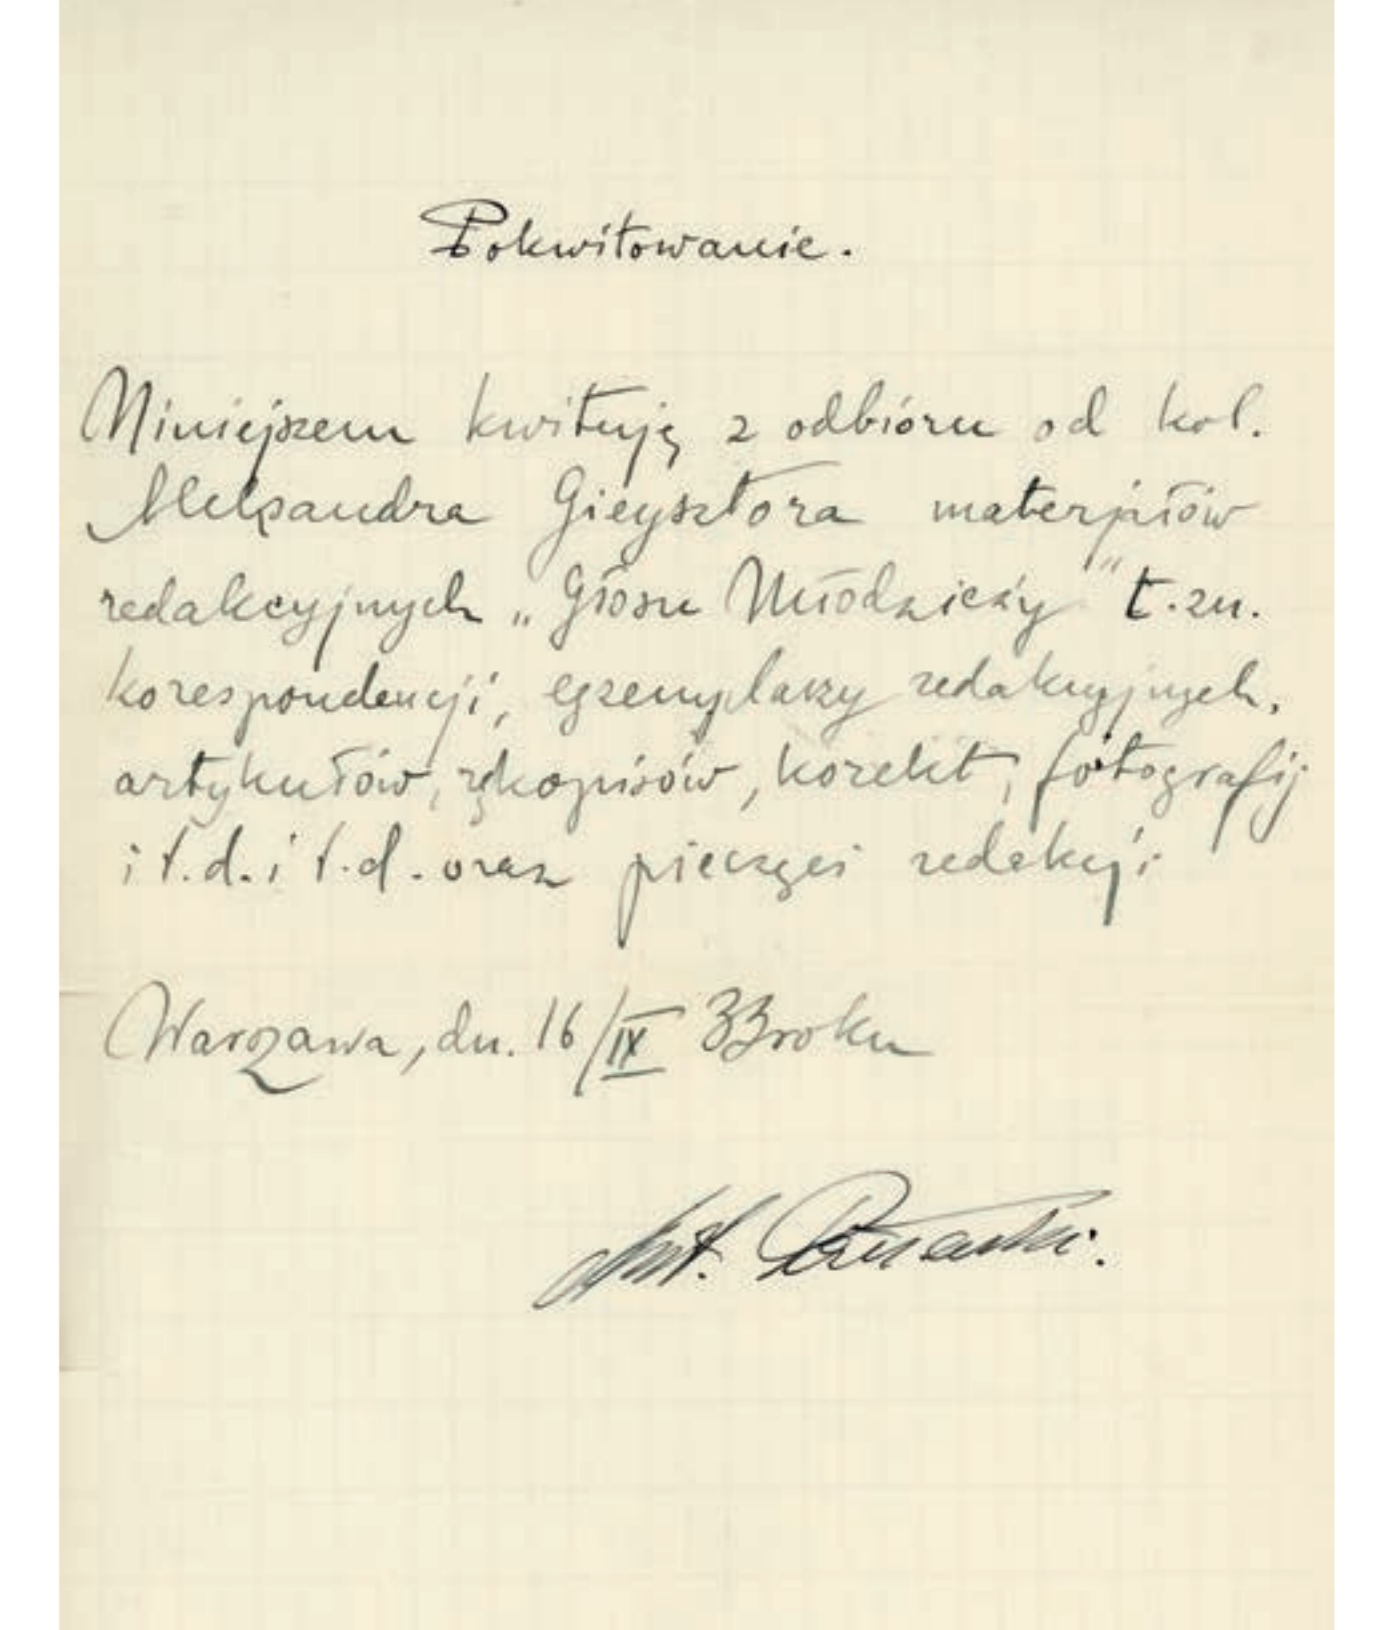 Pokwitowanie.
Niniejszem kwituję z odbióru od kol.
Aleksandra Gieysztora materjałów
redakcyjnych „Głosu Młodzieży" t.zn.
korespondencji, egzemplarzy redakcyjnych,
artykułów, rękopisów, korekt, fotografij
i t.d. i t.d. oraz pieczęci redakcji
Warszawa, dn. 16/IX 33 roku
Ant.